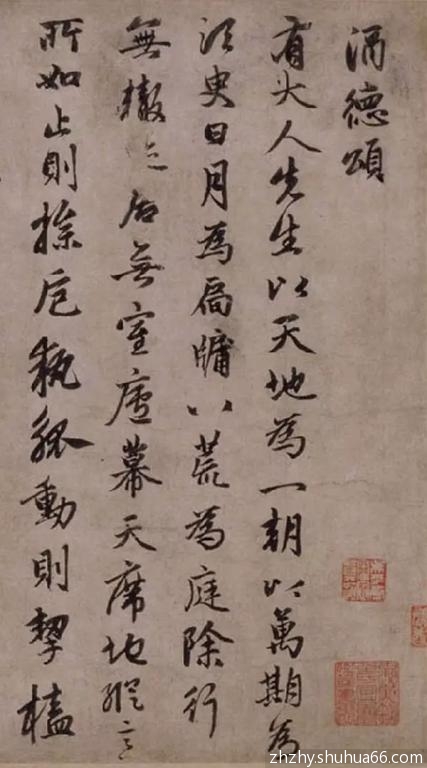 酒德頌
有大人先生以天地為一朝以萬期為
須臾日月為扃牖八荒為庭除行
無轍迹居無室廬幕天席地縱意
所如止則操卮執觚動則挈榼
zhzhy.shuhua66.com